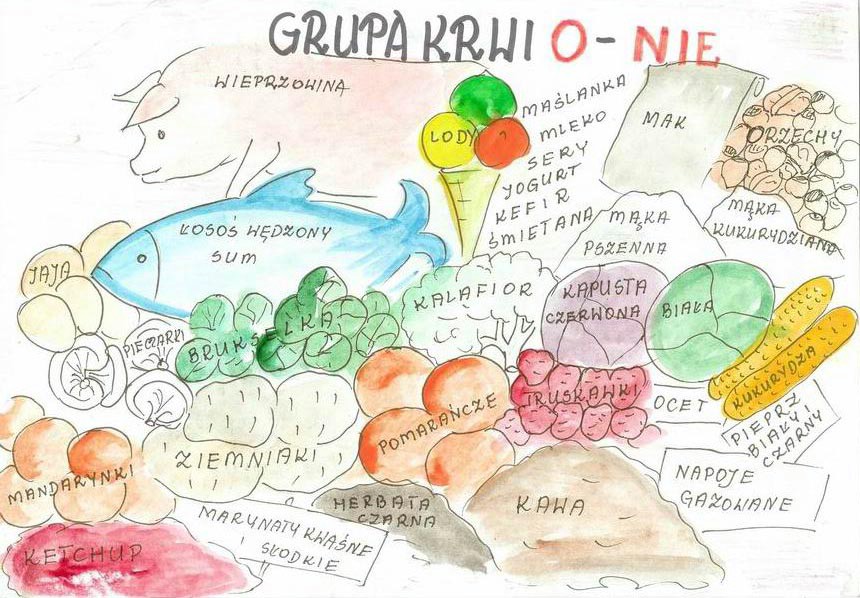 GRUPA KRWI O - NIE
WIEPRZOWINA
LODY
MAŚLANKA
MLEKO
SERY
YOGURT
KEFIR
ŚMIETANA
MAK
ORZECHY
MĄKA
PSZENNA
MĄKA
KUKURYDZIANA
ŁOSOŚ WĘDZONY
SUM
JAJA
PIECZARKI
BRUKSELKA
KALAFIOR
KAPUSTA
CZERWONA
BIAŁA
KUKURYDZA
TRUSKAWKI
OCET
PIEPRZ
BIAŁY I
CZARNY
POMARAŃCZE
ZIEMNIAKI
MANDARYNKI
NAPOJE
GAZOWANE
KAWA
HERBATA
CZARNA
MARYNATY KWAŚNE
SŁODKIE
KETCHUP